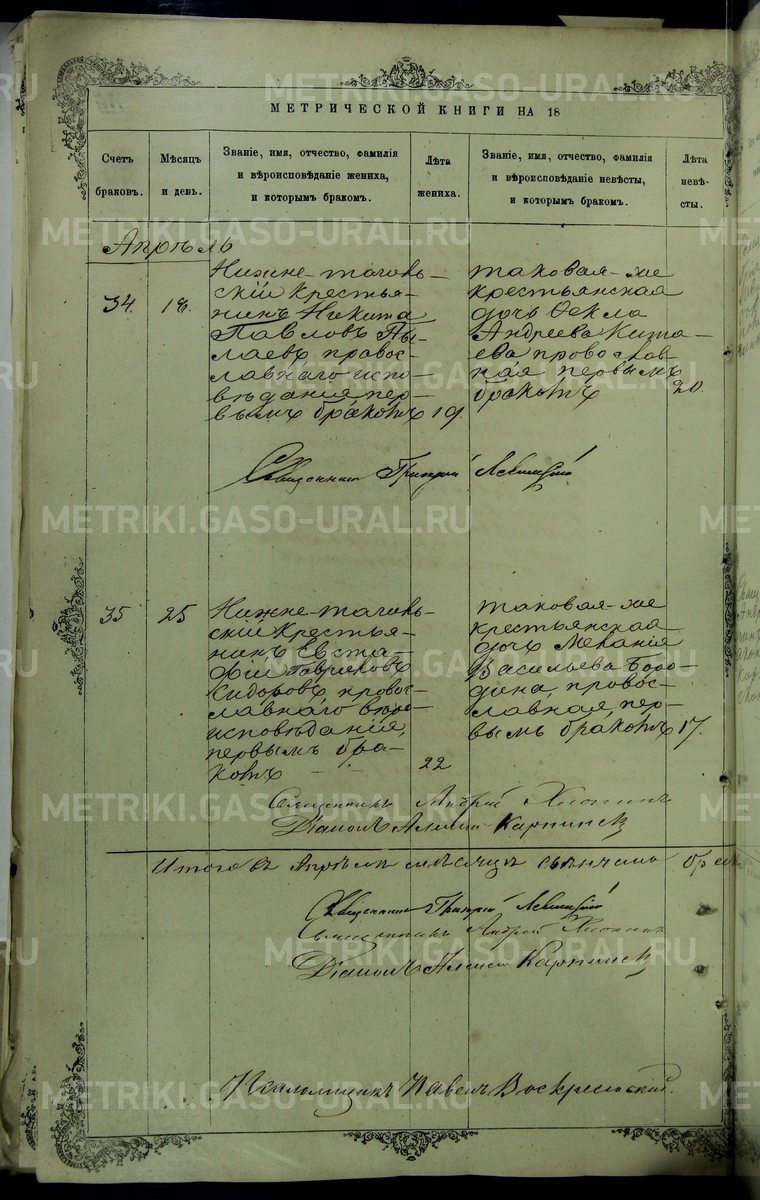 МЕТРИЧЕСКОЙ КНИГИ НА 18
Счетъ браковъ.
Мѣсяцъ и день.
Званіе, имя, отчество, фамилія и вѣроисповѣданіе жениха, и которымъ бракомъ.
Лѣта жениха.
Званіе, имя, отчество, фамилія и вѣроисповѣданіе невѣсты, и которымъ бракомъ.
Лѣта невѣсты.
Апрѣль
34.
18.
Нижне-тагиль-
скій крестья-
нинъ Никита
Павловъ Пы-
лаевъ правос-
лавнаго испо-
вѣданія пер-
вымъ бракомъ
19.
таковая-же
крестьянская
дочь Ѳекла
Андреева Кита-
ева провослав-
ная первымъ
бракомъ
20.
Священникъ Григорій Левицкій
35
25
Нижне-тагиль-
скій Крестья-
нинъ Евста-
фій Гавриловъ
Сидоровъ правос-
лавнаго вѣро-
исповѣданія,
первымъ бра-
комъ
22
таковая-же
крестьянская
дочь Меланія
Васильева Боро-
дина, правос-
лавная, пер-
вымъ бракомъ
17.
Священникъ Андрей Хлопинъ
Діаконъ Алексій Карпинск
Итого въ Апрѣлѣ мѣсяцѣ вѣнчано
Священникъ Григорій Левицкій
Священникъ Андрей Хлопинъ
Діаконъ Алексій Карпинск
Псаломщикъ Павелъ Воскресенскій.
METRIKI.GASO-URAL.RU